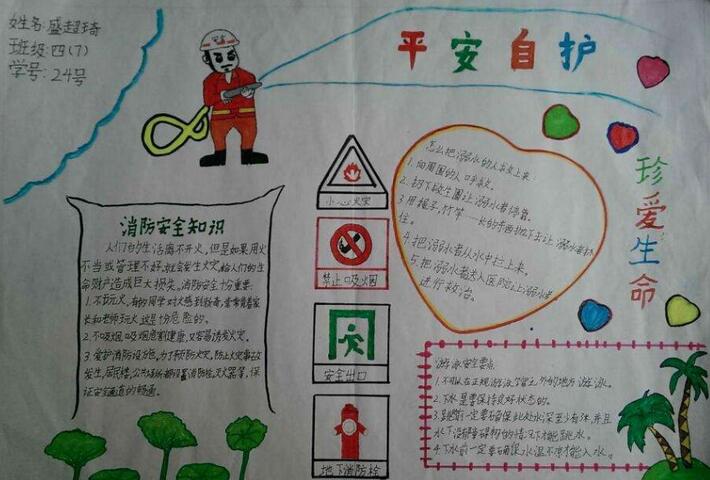 姓名:盛超琦
班级:四(7)
学号:24号
平安自护
珍爱生命
消防安全知识
人们的生活离不开火,但是如果用火
不当或管理不好,就会发生火灾,给人们的生
命财产造成巨大损失。消防安全十分重要:
1.不玩火。有的同学对火感到好奇,常常背着家
长和老师玩火,这是十分危险的。
2.不吸烟。吸烟危害健康,又容易诱发火灾。
3.爱护消防设施。为了预防火灾,防止火事故
发生,居民楼,公共场所都设置消防栓,灭火器等,保
证安全通道的畅通。
小心火灾
禁止吸烟
安全出口
地下消防栓
怎么把溺水的人救上来:
1.向周围的人呼救。
2.扔下救生圈让溺水者
3.用绳子,竹竿
住。
4.把溺水者从水中拉上来。
5.把溺水者送入医院让溺水者
进行救治。
游泳安全要点
1.不可以在正规游泳管理外的地方游泳。
2.下水是要保持良好状态的。
3.跳前一定要确保此处水深至少有 米,并且
水下没有障碍物的情况下才能跳水。
4.下水前一定要确保水温不凉才能入水。